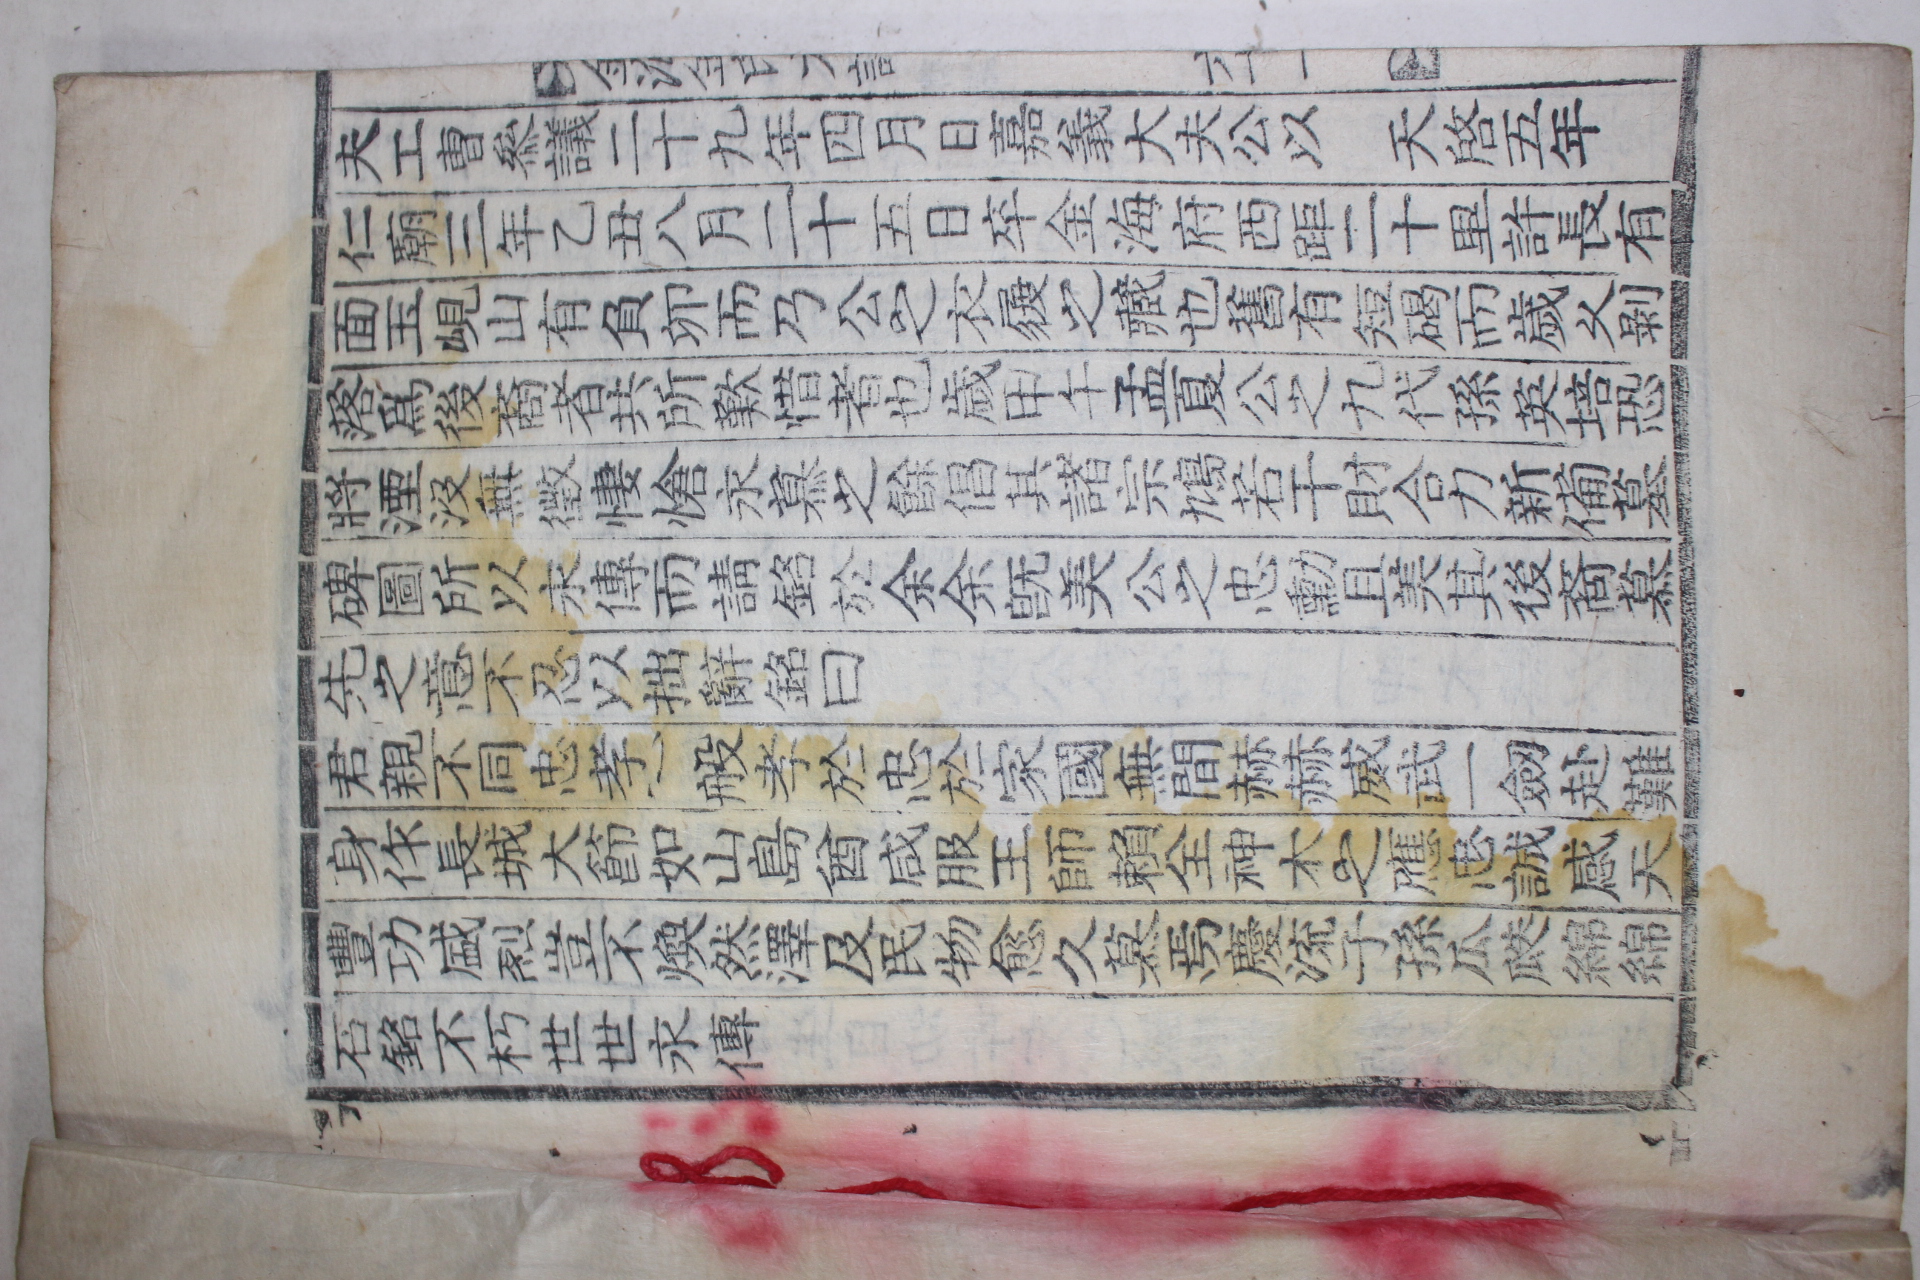 夫工曹參議二十九年四月日嘉義大夫公以 天啓五年
仁廟三年乙丑八月二十五日卒金海府西距二十里許長有
面玉峴山有負卯而乃公之衣履之藏也舊有短碣而歲久剝
落爲後裔者共所歎惜者也歲甲午孟夏公之九代孫英培恐
將湮沒無徵悽愴永慕之餘倡其諸宗鳩若干財合力新備墓
碑圖所以永傳而請銘於余余旣美公之忠勳且美其後裔慕
先之意不忍以拙辭銘曰
君親不同忠孝一般孝於忠於家國無間赫赫威武一劒赴難
身作長城大節如山島酋咸服王師賴全神木之應忠誠感天
豐功盛烈豈不煥然澤及民物愈久慕焉慶流子孫瓜瓞綿綿
石銘不朽世世永傳
六十一